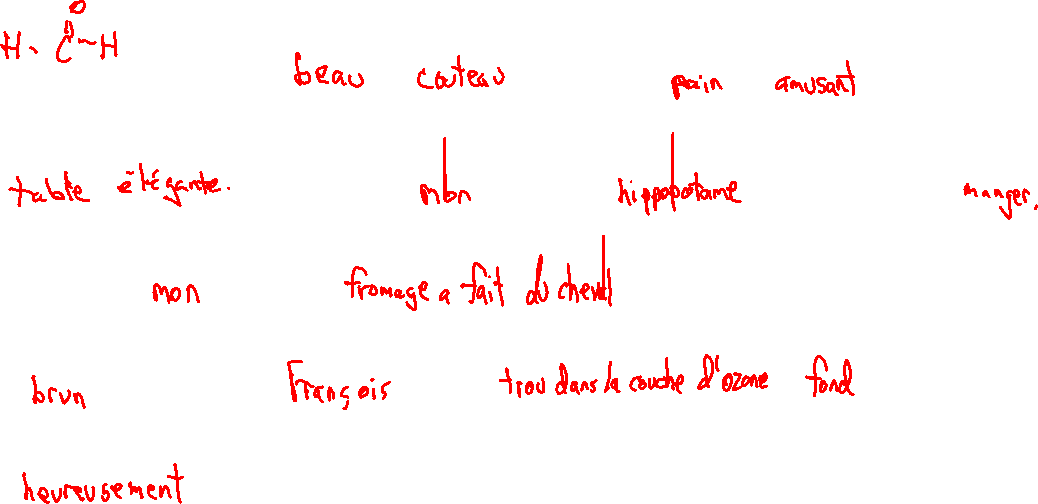 O
H. C-H
beau couteau pain amusant
table élégante. mon hippopotame manger.
mon fromage a fait du cheval
brun François trou dans la couche d'ozone fond
heureusement